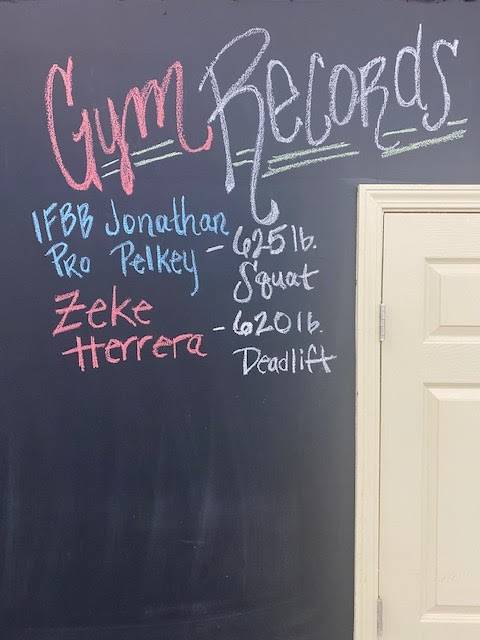 Gym Records
IFBB Jonathan
Pro Pelkey - 625 lb.
Squat
Zeke
Herrera - 620 lb.
Deadlift